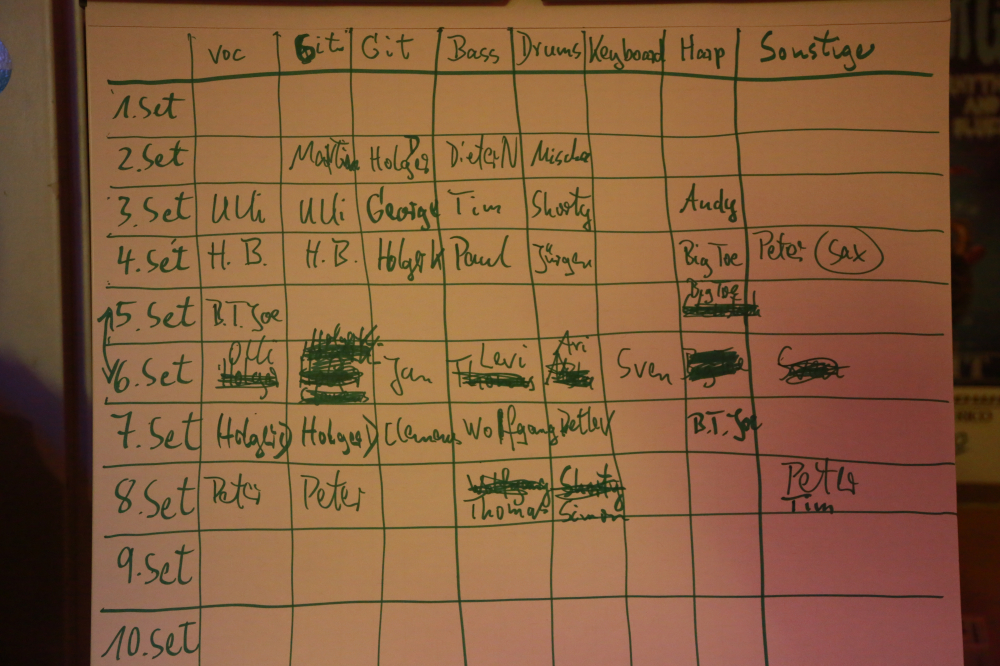 Voc Git Git Bass Drums Keyboard Harp Sonstige
1.Set
2.Set Martin Holger Dieter N Mischa
3.Set Ulli Ulli George Tim Shorty Andy
4.Set H.B. H.B. Holger K Paul Jürgen Big Joe Peter Sax
5.Set B.T. Joe Big Joe
6.Set Olli Jan Levi Ari Sven
7.Set Holger D Holger D Clemens Wolfgang Detlev B.T. Joe
8.Set Peter Peter Shorty Peter
Thomas Simon Tim
9.Set
10.Set